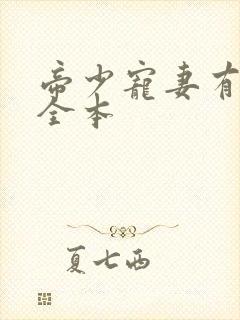 帝少宠妻有
全本
夏七西